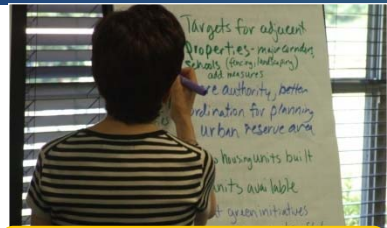 Targets for adjacent
Properties - major
schools (fencing, landscaping)
add measures
re authority, better
rdination for planning
urban reserve area
housing units built
units available
green initiatives